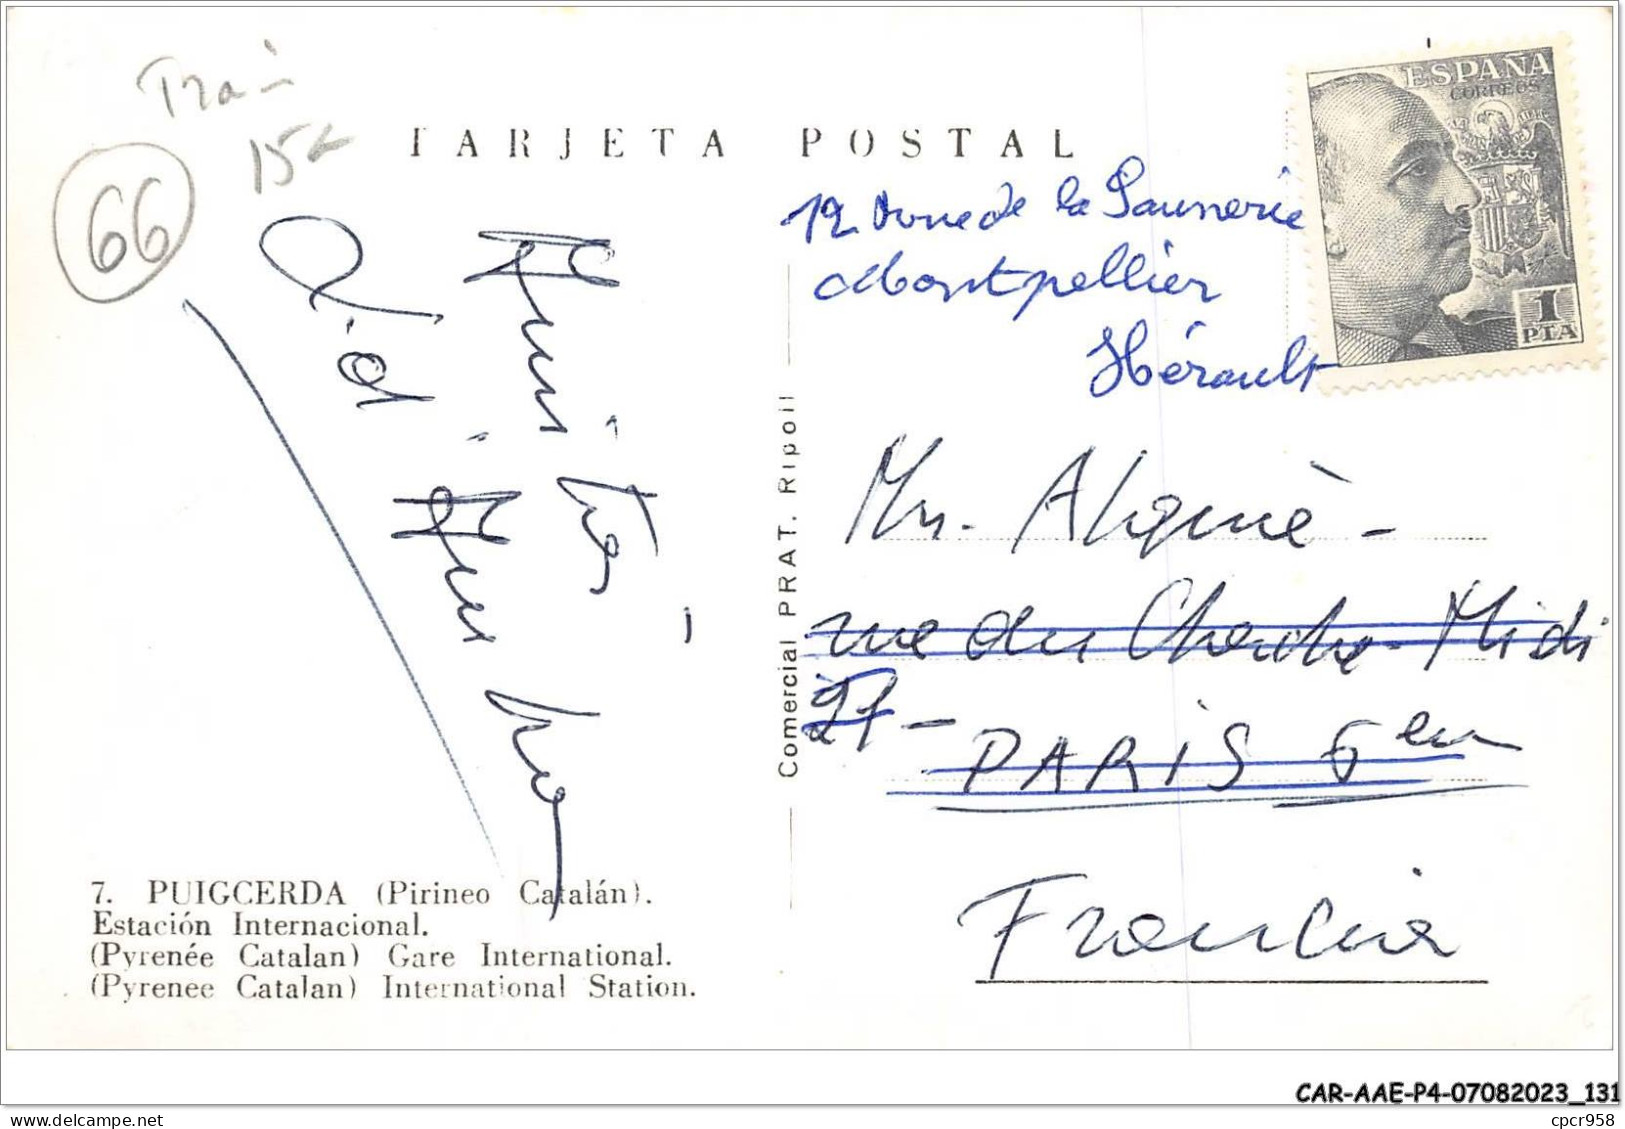 15€
66
TARJETA POSTAL
ESPAÑA
CORREOS
1
PTA
12 de la Saunerie
Montpellier
Hérault
Mr. Alquiè -
rue du Cherche-Midi
27 -
PARIS 6em
Francia
Comercial PRAT. Ripoll
7. PUIGCERDA (Pirineo Catalán).
Estación Internacional.
(Pyrenée Catalan) Gare International.
(Pyrenee Catalan) International Station.
CAR-AAE-P4-07082023_131
cpcr958